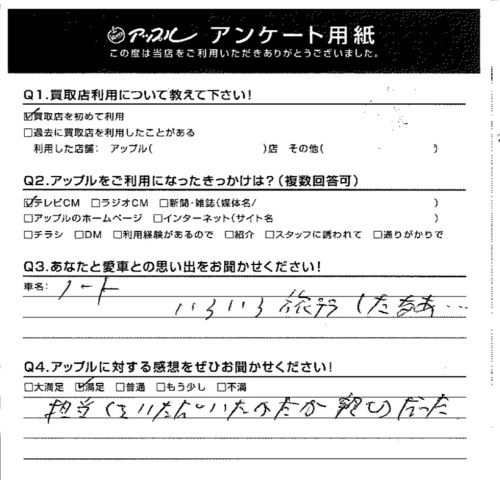 アップル アンケート用紙
この度は当店をご利用いただきありがとうございました。
Q1.買取店利用について教えて下さい!
☑買取店を初めて利用
□過去に買取店を利用したことがある
利用した店舗: アップル( )店 その他( )
Q2.アップルをご利用になったきっかけは?(複数回答可)
☑テレビCM □ラジオCM □新聞・雑誌(媒体名/ )
□アップルのホームページ □インターネット(サイト名 )
□チラシ □DM □利用経験があるので □紹介 □スタッフに誘われて □通りがかりで
Q3.あなたと愛車との思い出をお聞かせください!
車名: ノート
いろいろ旅行したなあ…
Q4.アップルに対する感想をぜひお聞かせください!
□大満足 ☑満足 □普通 □もう少し □不満
担当していただいたかたが親切だった